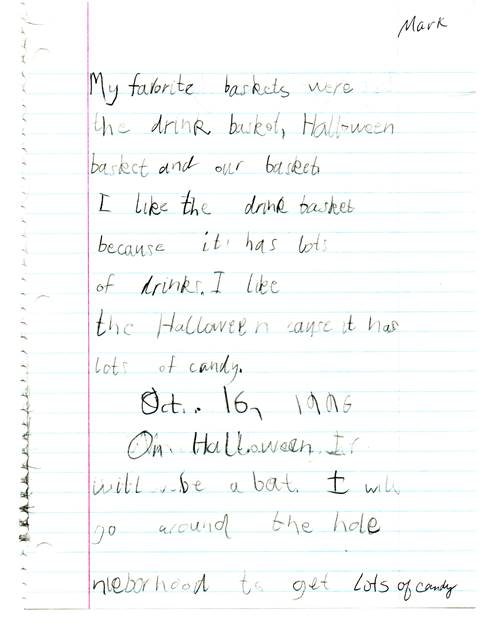 Mark
My favorite baskets were
the drink basket, Halloween
basket and our basket
I like the drink basket
because it has lots
of drinks. I like
the Halloween cause it has
lots of candy.
Oct. 16, 1996
On Halloween I
will be a bat. I will
go around the hole
nieborhood to get lots of candy